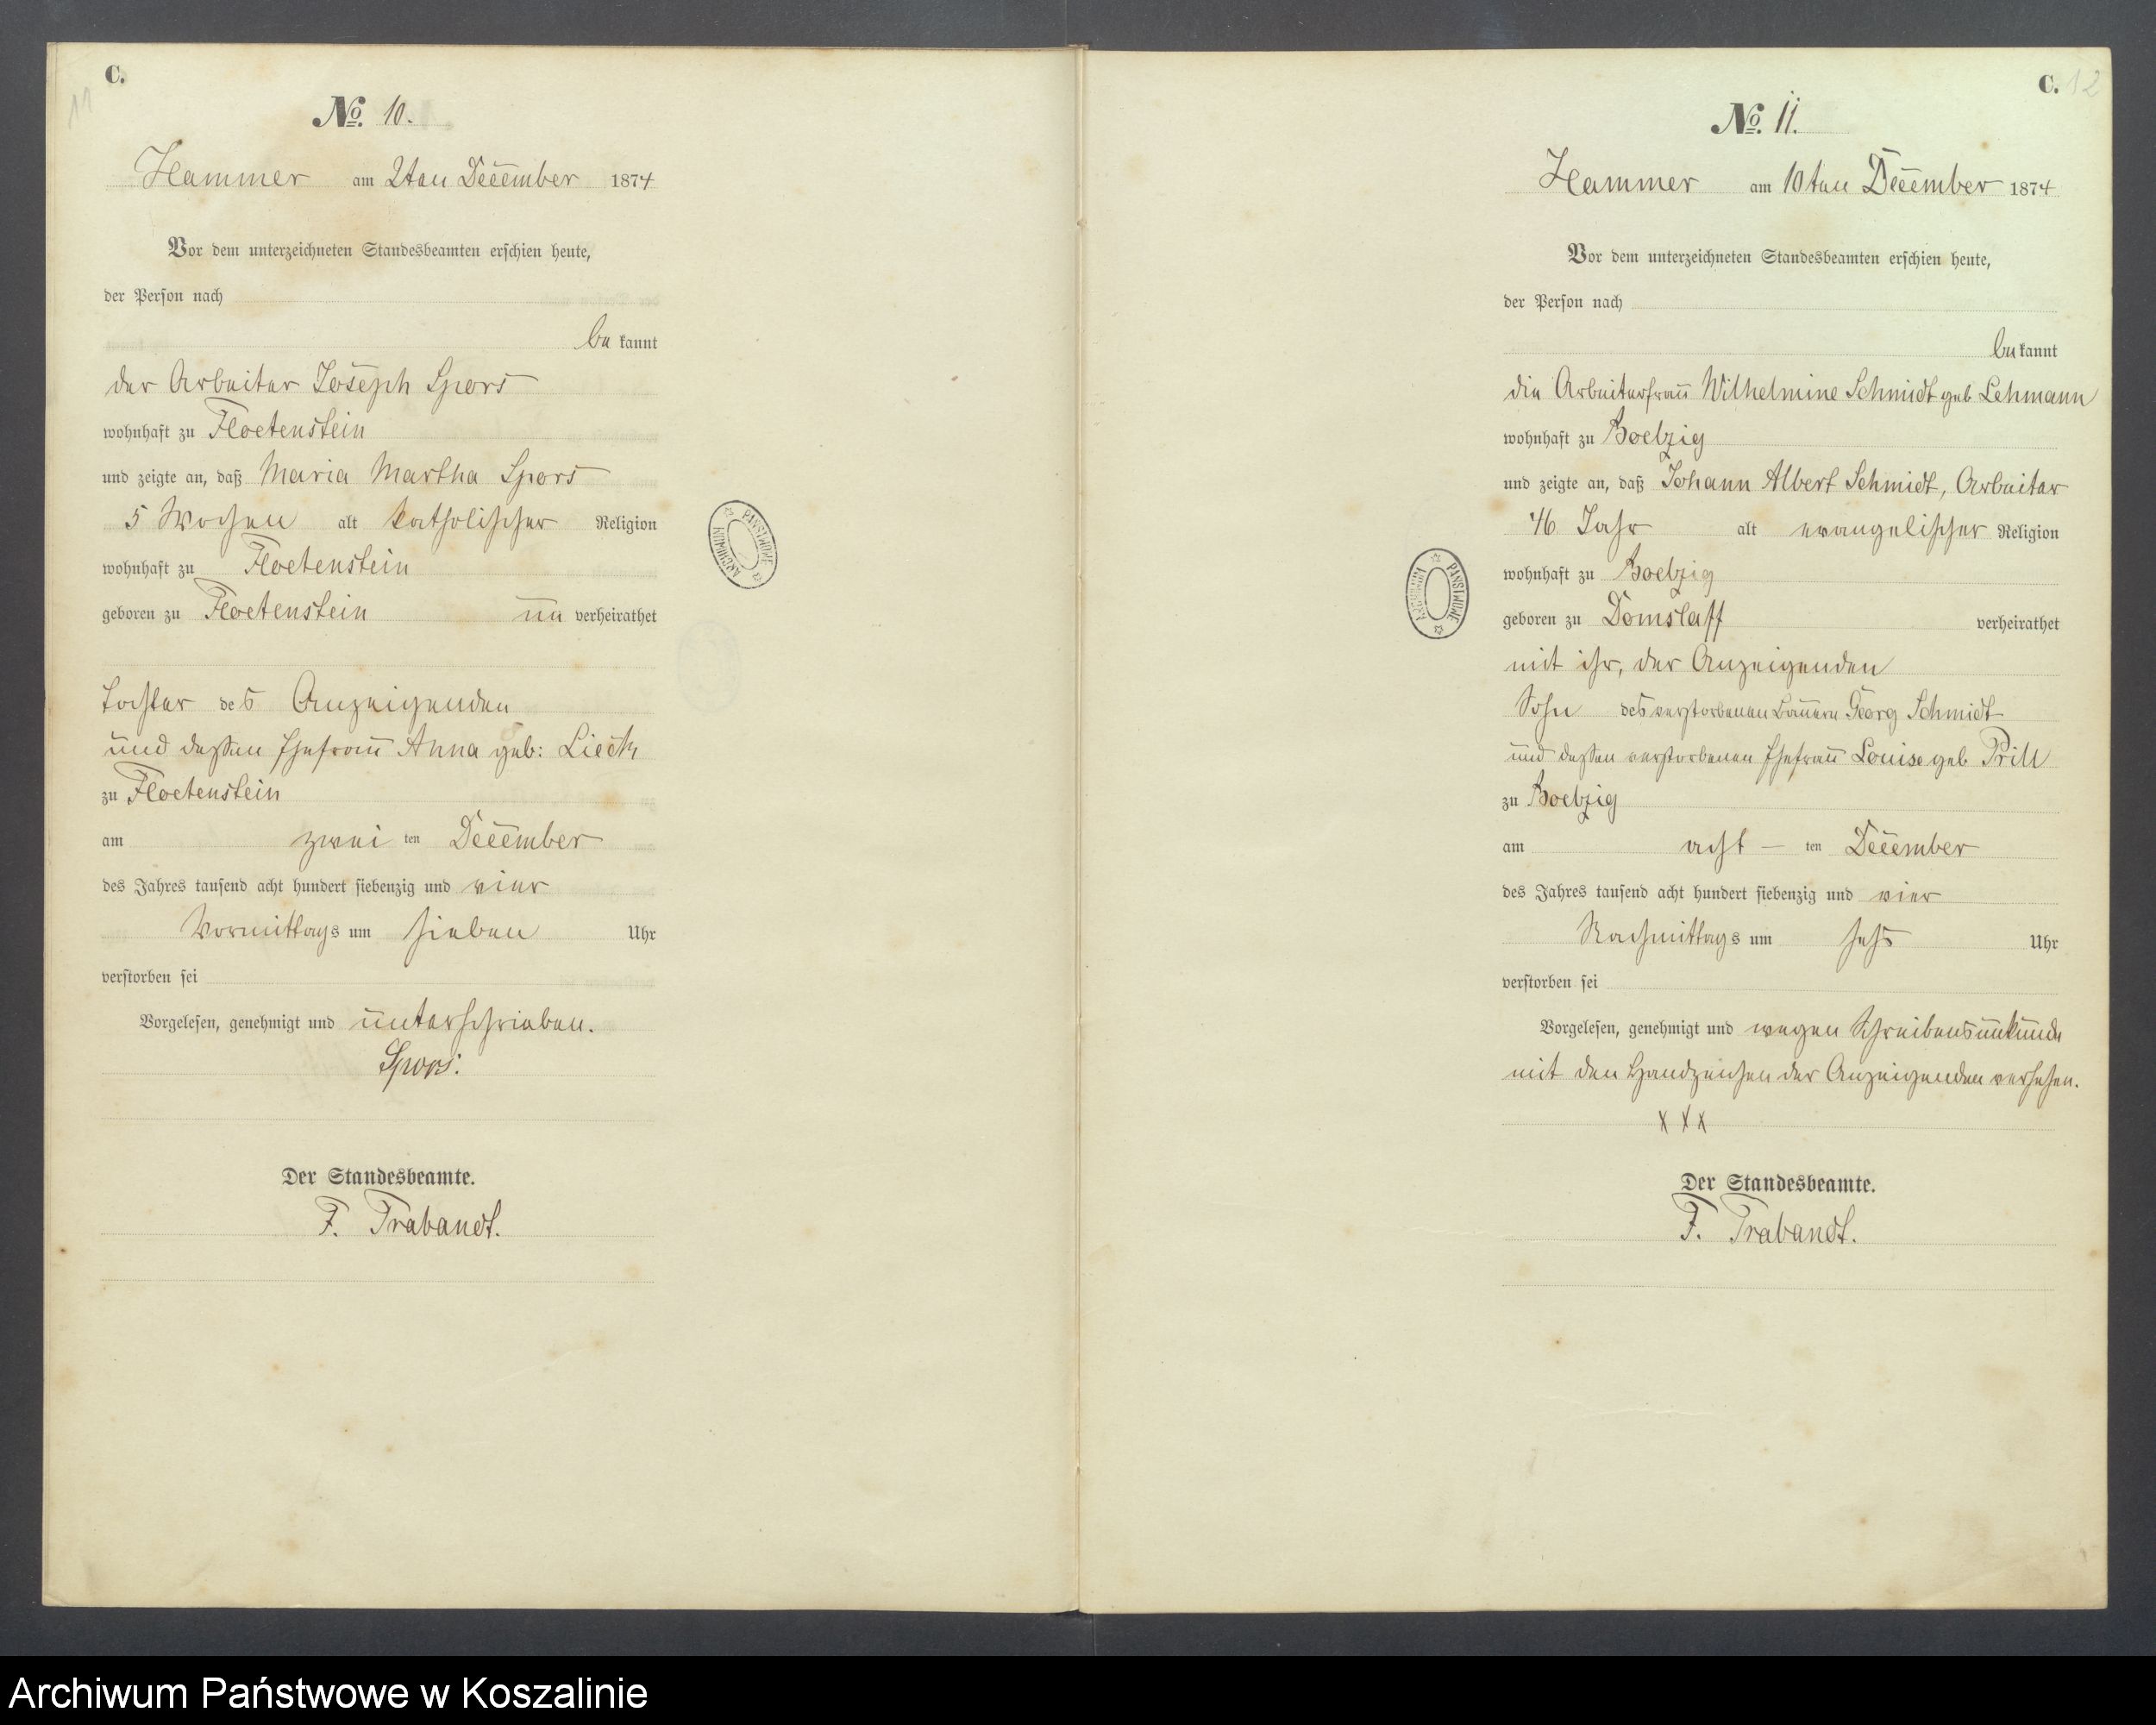 C.
11
No. 10.
Hammer am 2ten December 1874
Vor dem unterzeichneten Standesbeamten erschien heute,
der Person nach
be kannt
der Arbeiter Joseph Spors
wohnhaft zu Floetenstein
und zeigte an, daß Maria Martha Spors
5 Wochen alt katholischer Religion
wohnhaft zu Floetenstein
geboren zu Floetenstein un verheirathet
Tochter des Anzeigenden
und dessen Ehefrau Anna geb: Lieck
zu Floetenstein
am zwei ten December
des Jahres tausend acht hundert siebenzig und vier
Vormittags um sieben Uhr
verstorben sei
Vorgelesen, genehmigt und unterschrieben.
Spors.
Der Standesbeamte.
F. Trabandt.
ARCHIWUM PAŃSTWOWE
C. 12
No. 11.
Hammer am 10ten December 1874
Vor dem unterzeichneten Standesbeamten erschien heute,
der Person nach
be kannt
die Arbeiterfrau Wilhelmine Schmidt geb Lehmann
wohnhaft zu Boelzig
und zeigte an, daß Johann Albert Schmidt, Arbeiter
46 Jahr alt evangelischer Religion
wohnhaft zu Boelzig
geboren zu Domslaff verheirathet
mit ihr, der Anzeigenden
Sohn des verstorbenen Bauern Georg Schmidt
und dessen verstorbenen Ehefrau Louise geb Prill
zu Boelzig
am acht – ten December
des Jahres tausend acht hundert siebenzig und vier
Nachmittags um sechs Uhr
verstorben sei
Vorgelesen, genehmigt und wegen Schreibensunkunde
mit den Handzeichen der Anzeigenden versehen.
x x x
Der Standesbeamte.
F. Trabandt.
ARCHIWUM PAŃSTWOWE
Archiwum Państwowe w Koszalinie